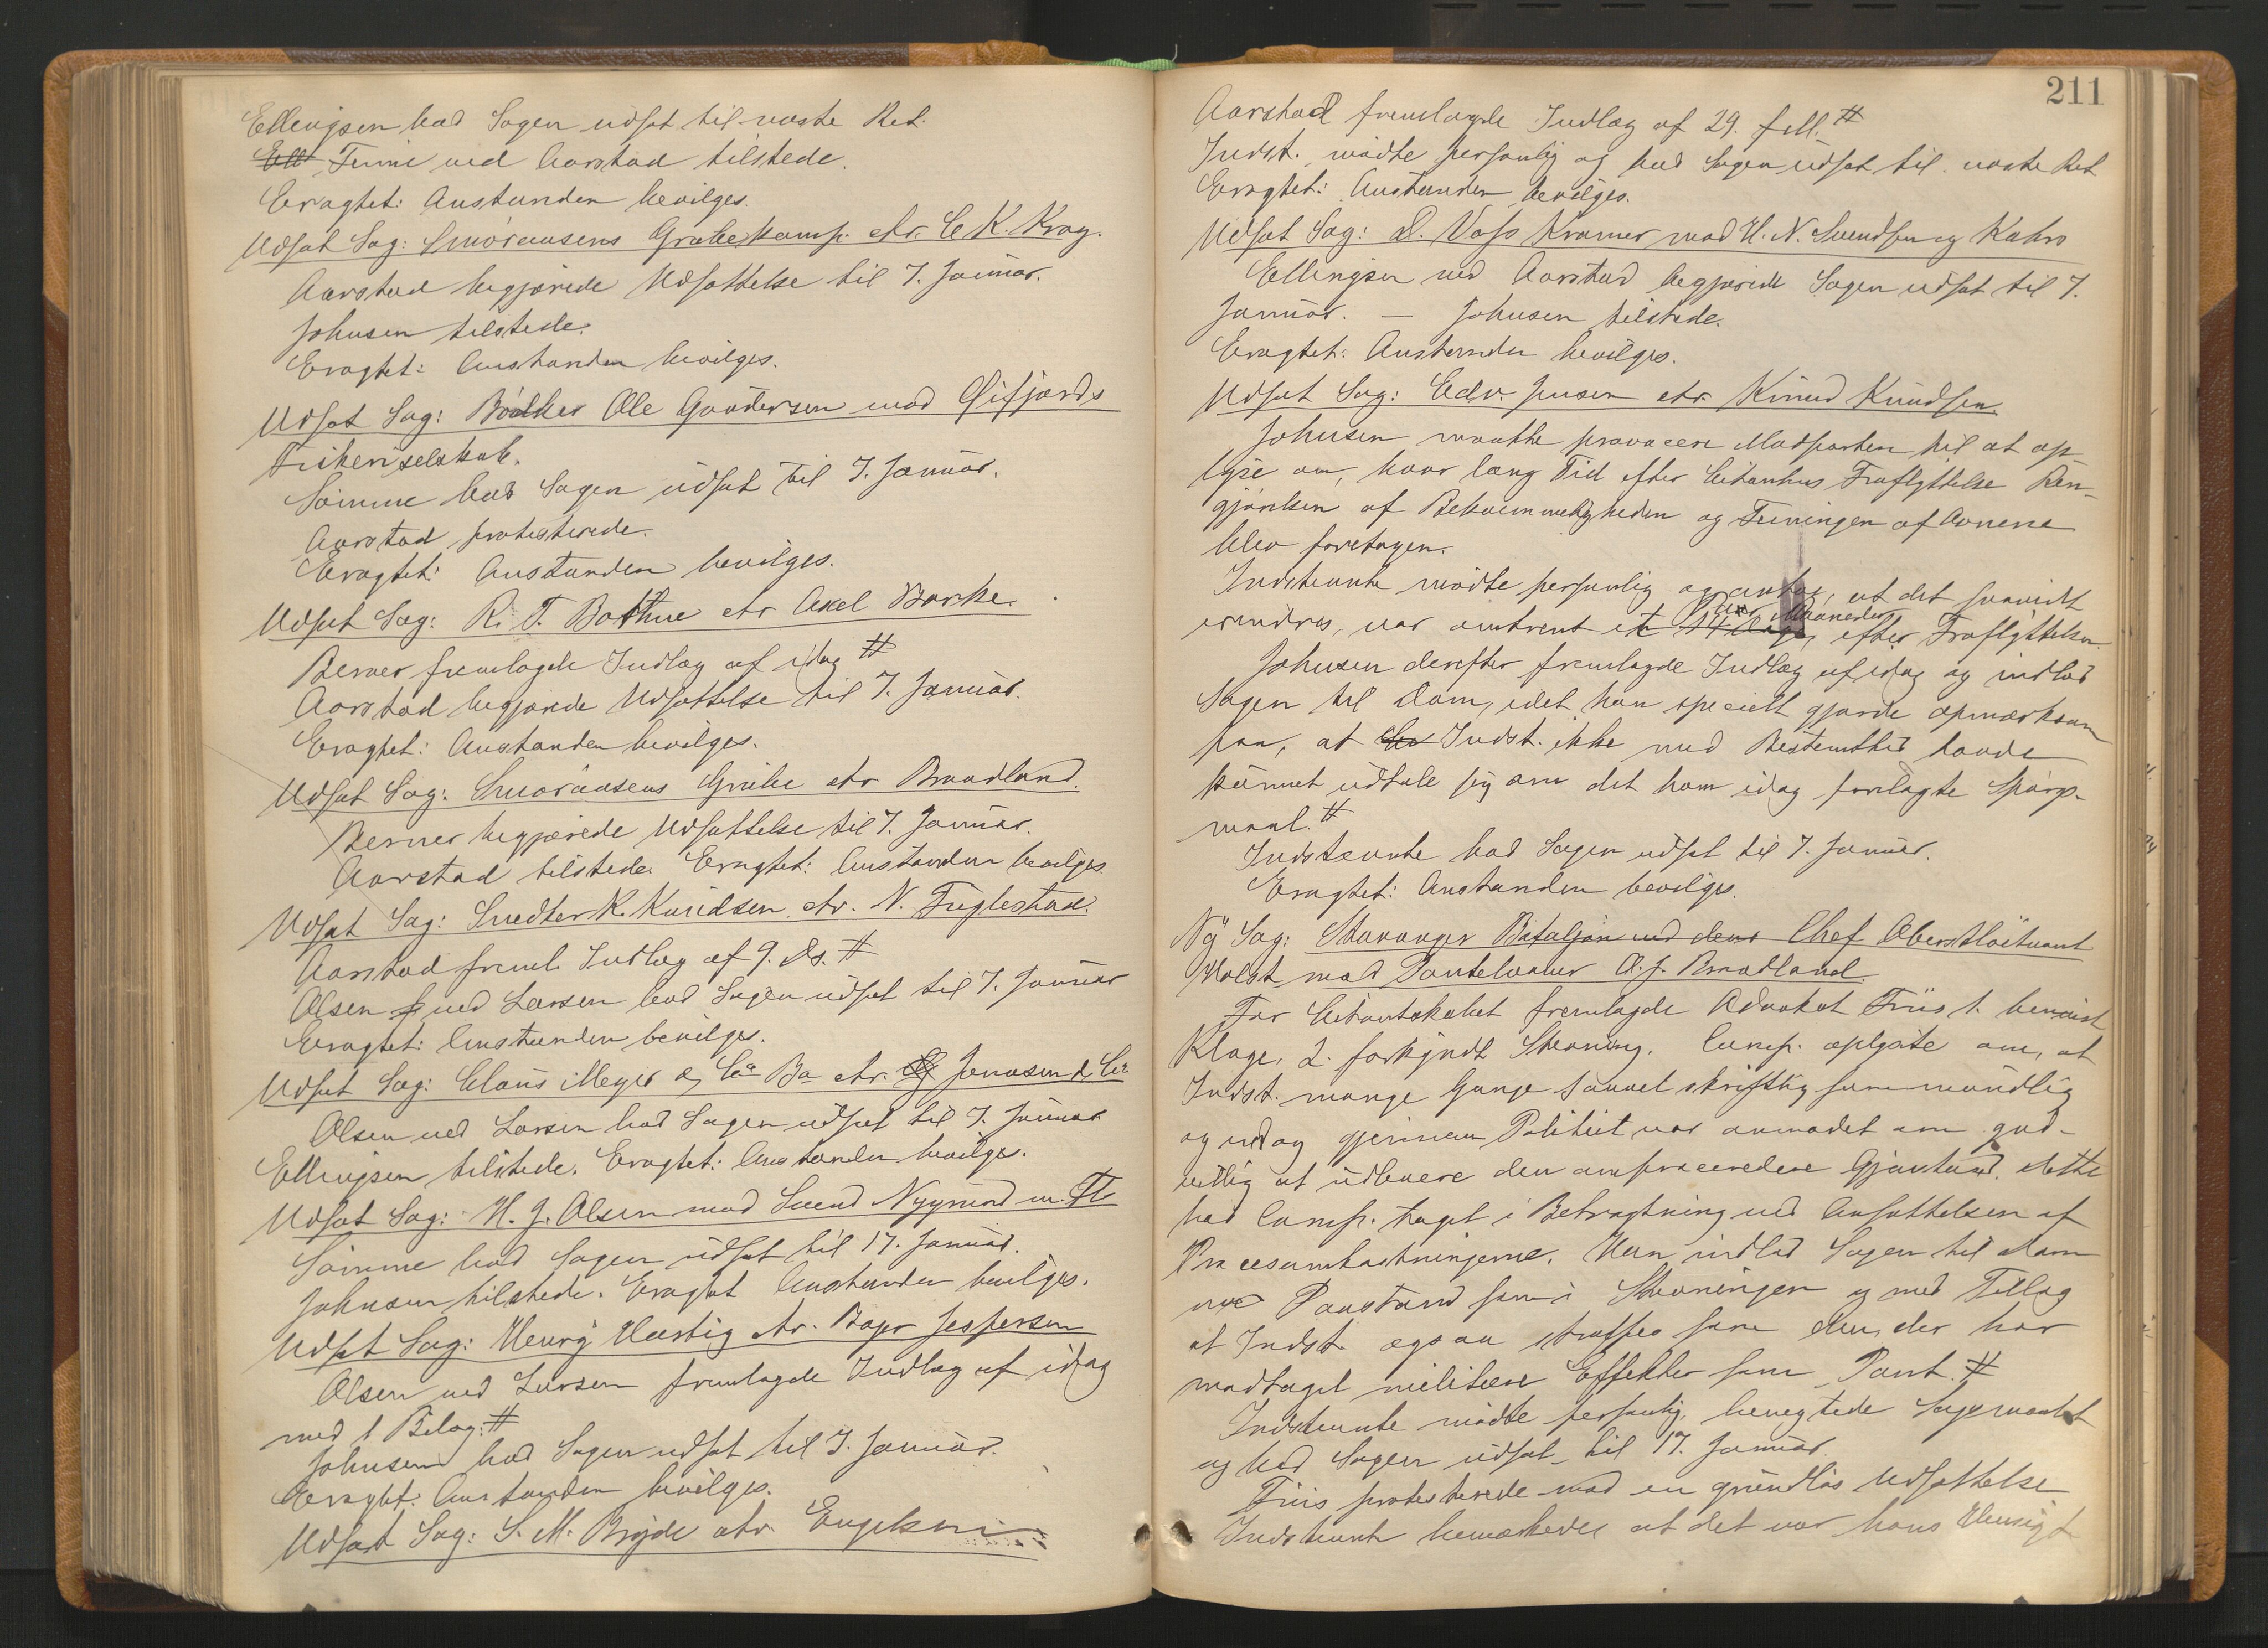 Ellingsen bad Sagen udsat til næste Ret.
Ell Frime ved Aarstad tilstede.
Eragtet: Anstanden bevilges.
Udsat Sag: Smöraasens Grubekomp. ctr. C K. Krag.
Aarstad begjærede Udsættelse til 7. Januar.
Johnsen tilstede.
Eragtet: Anstanden bevilges.
Udsat Sag: Bödker Ole Gaudersen mod Öifjords
Fiskeriselskab.
Sömme bad Sagen udsat til 7. Januar.
Aarstad protesterede.
Eragtet: Anstanden bevilges.
Udsat Sag: R. T. Bothne ctr Axel Barke.
Berner fremlagde Indlæg af idag #
Aarstad begjærede Udsættelse til 7. Januar.
Eragtet: Anstanden bevilges.
Udsat Sag: Smöraasens Grube ctr Braadland.
Berner begjærede Udsættelse til 7. Januar.
Aarstad tilstede. Eragtet: Anstanden bevilges.
Udsat Sag: Snedker K. Knudsen ctr. N. Fuglestad.
Aarstad freml. Indlæg af 9. ds. #
Olsen ved Larsen bad Sagen udsat til 7. Januar
Eragtet: Anstanden bevilges.
Udsat Sag: Claus Meyer & Co Bo ctr. Jonasen & Co
Olsen ved Larsen bad Sagen udsat til 7. Januar
Ellingsen tilstede. Eragtet: Anstanden bevilges.
Udsat Sag: H. J. Olsen mod Svend Nygaard m. Fl
Sömme bad Sagen udsat til 17. Januar.
Johnsen tilstede. Eragtet Anstanden bevilges.
Udsat Sag: Henry Hartig ctr. Bager Jespersen
Olsen ved Larsen fremlagde Indlæg af idag
med 1 Bilag: #
Johnsen bad Sagen udsat til 7. Januar.
Eragtet: Anstanden bevilges.
Udsat Sag: S. M. Bryde ctr. Engelsen
211
Aarstad fremlagde Indlæg af 29. f. M. #
Indst. mödte personlig og bad Sagen udsat til næste Ret
Eragtet: Anstanden bevilges.
Udsat Sag: D. Voss Kramer mod H. N. Svendsen og Kahrs
Ellingsen ved Aarstad begjærede Sagen udsat til 7.
Januar. — Johnsen tilstede.
Eragtet: Anstanden bevilges.
Udsat Sag: Edv. Jensen ctr. Knud Knudsen.
Johnsen maatte provocere Modparten til at op-
lyse om, hvor lang Tid efter Citanthus Fraflyttelse Ren-
gjörelsen af Bekvemmeligheden og Feiningen af Ovnene
blev foretagen.
Indstevnte mödte personlig og antog, at det saavidt
erindres, var omtrent et Par Maaneder efter Fraflyttelsen.
Johnsen derefter fremlagde Indlæg af idag og indlod
Sagen til Dom, idet han specielt gjorde opmærksom
paa, at Indst. ikke med Bestemthed havde
kunnet udtale sig om det ham idag forelagte Spörgs-
maal. #
Indstevnte bad Sagen udsat til 7. Januar.
Eragtet: Anstanden bevilges.
Ny Sag: Stavanger Bataljon ved dens Chef Oberstlöitnant
Holst mod Pantelaaner A. J. Braadland.
For Citantskabet fremlagde Advokat Friis 1. henvist
Klage, 2. forkyndt Stevning. Comp. oplyste om, at
Indst. mange Gange saavel skriftlig som mundlig
og endog gjennem Politiet var anmodet om god-
villig at udlevere den omprocederede Gjenstand. Dette
bad Comp. taget i Betragtning ved Ansættelsen af
Procesomkostningerne. Han indlod Sagen til Dom
med Paastand som i Stevningen og med Tillæg
at Indst. ogsaa straffes som den, der har
modtaget militære Effekter som Pant. #
Indstevnte mödte personlig, benegtede Sagsmaalet
og bad Sagen udsat til 17. Januar
Friis protesterede mod en grundlös Udsættelse
Indstevnte bemærkede, at det var hans Hensigt